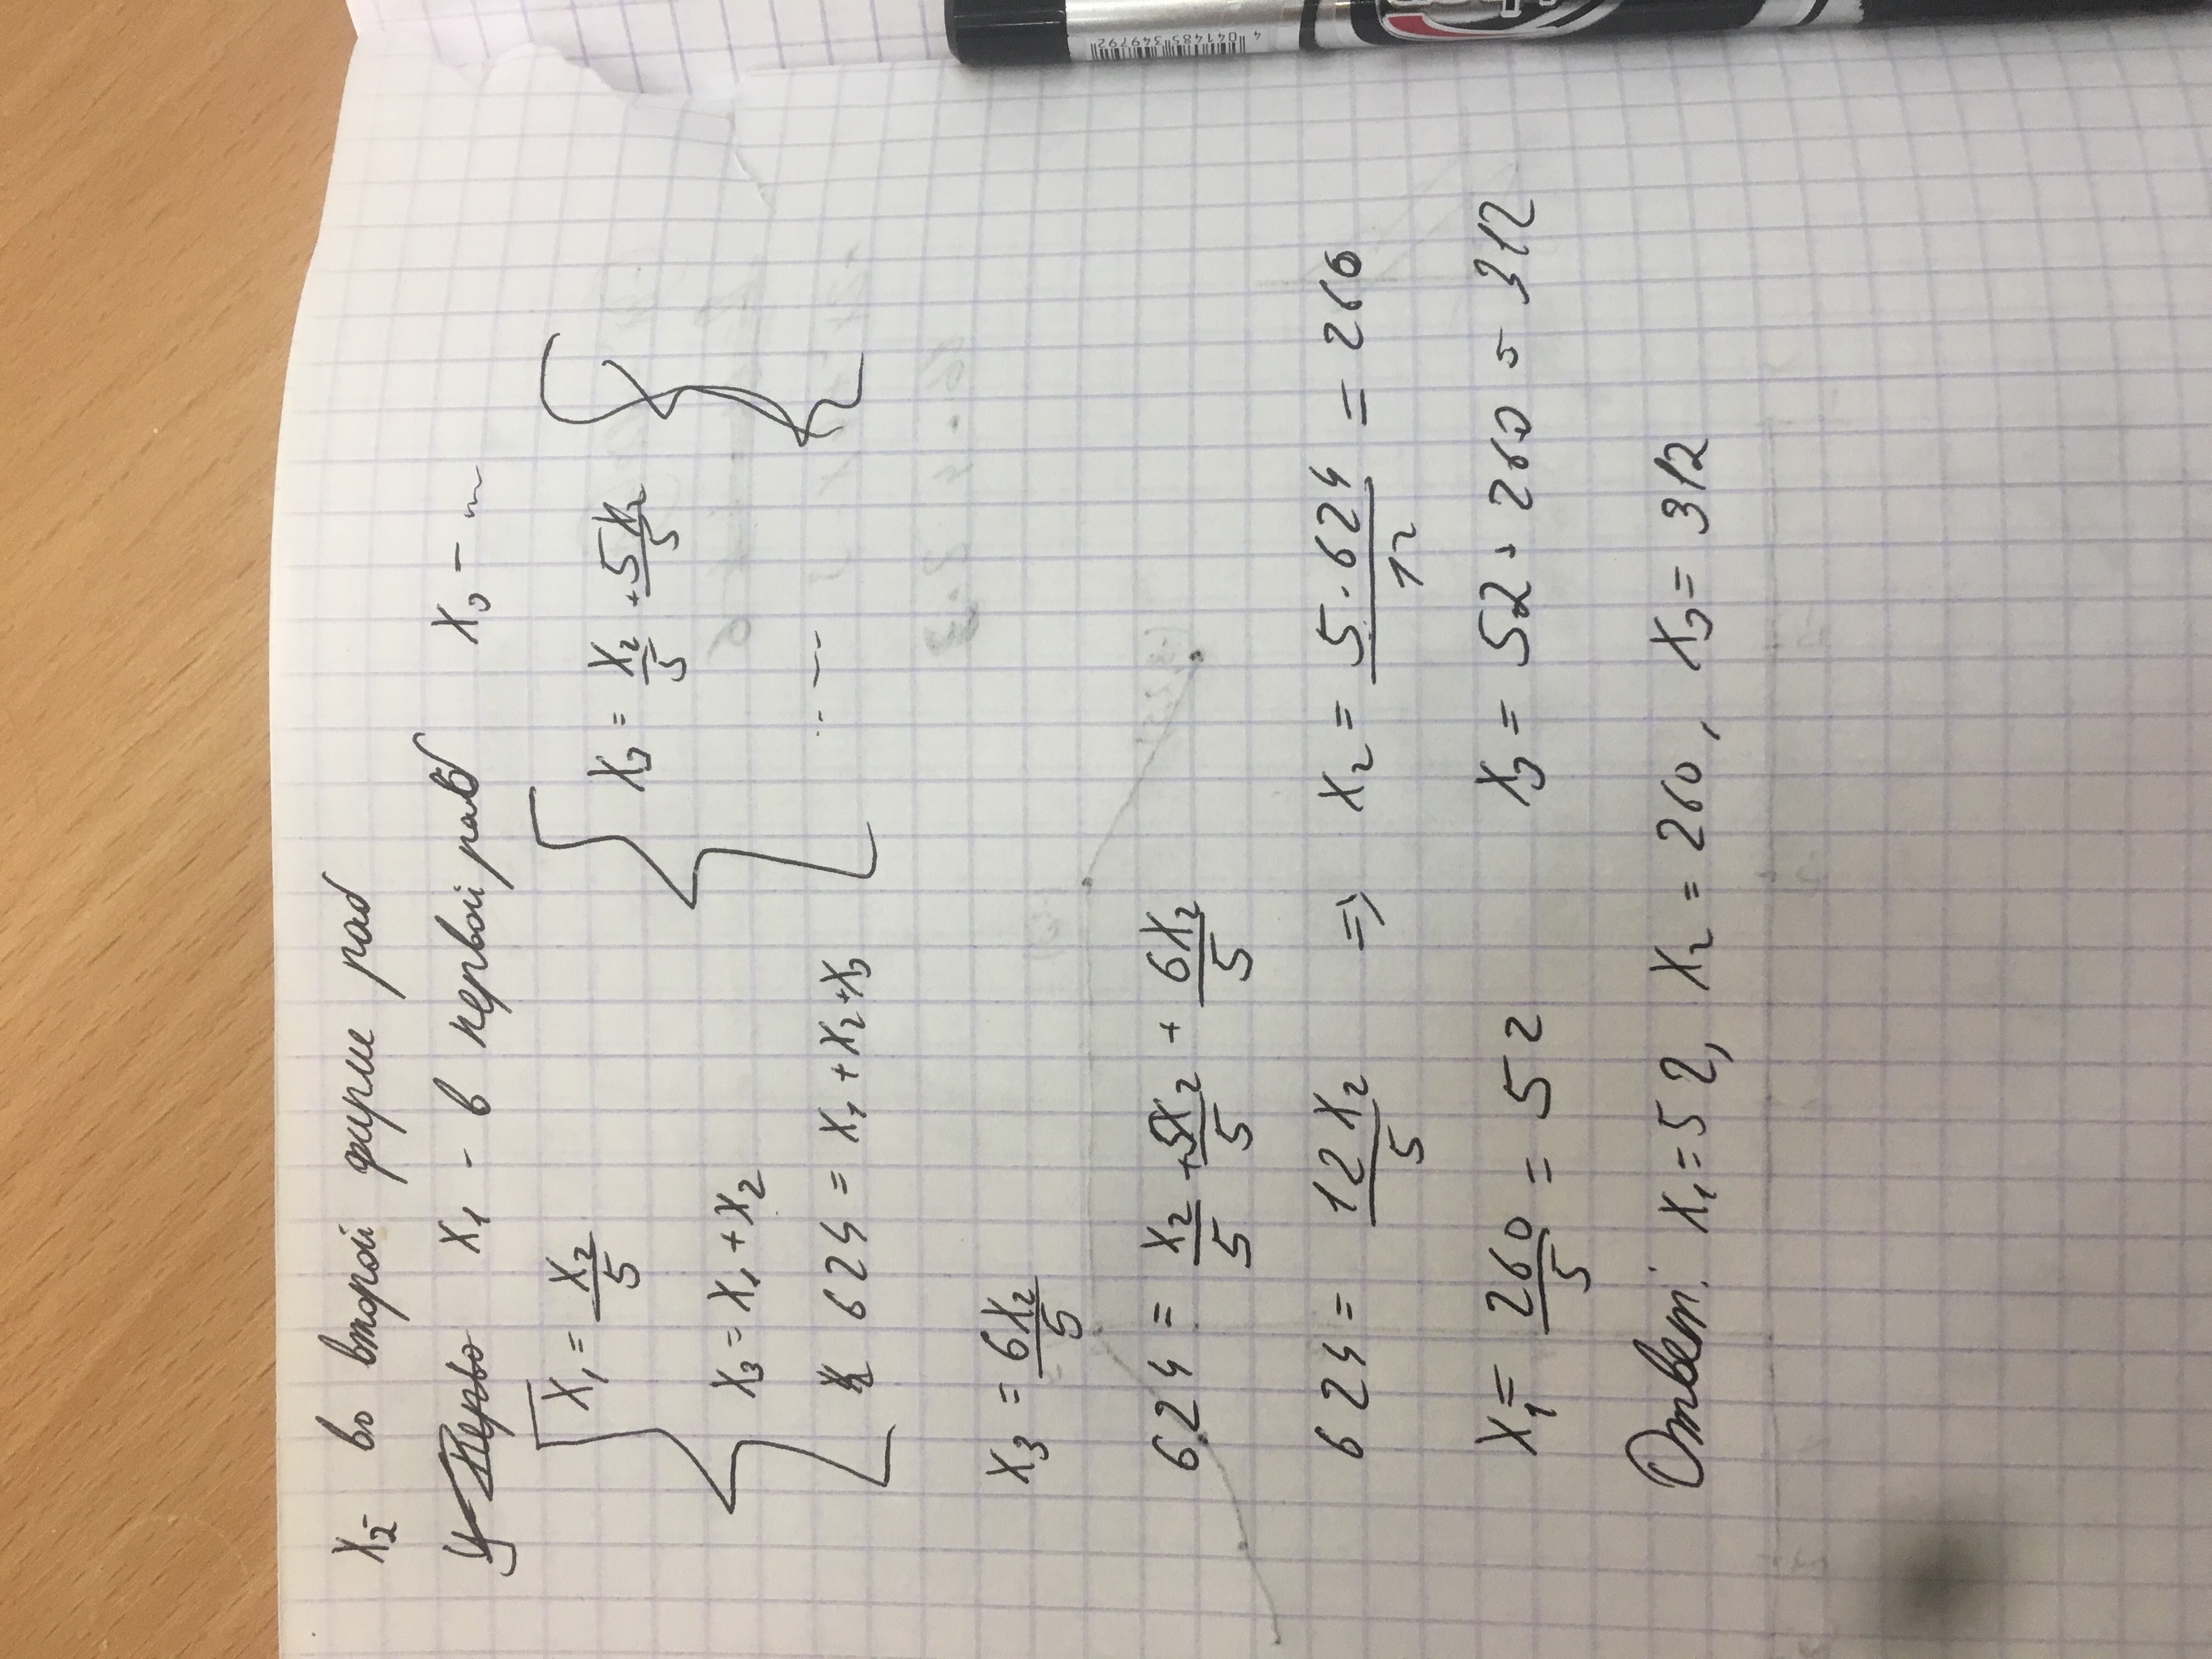 x₂- во второй фирме раб
x₁ - в первой раб x₃ - ~
x₁ = x₂/5
x₃ = x₁ + x₂
624 = x₁ + x₂ + x₃
x₃ = x₂/5 + 5x₂/5
. - --
x₃ = 6x₂/5
624 = x₂/5 + 5x₂/5 + 6x₂/5
624 = 12x₂/5 => x₂ = 5·624/12 = 260
x₁ = 260/5 = 52 x₃ = 52 + 260 = 312
Ответ: x₁ = 52, x₂ = 260, x₃ = 312
4 041485 349792